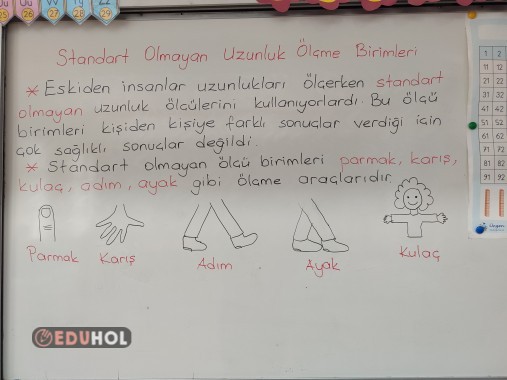 Uu
Üü
Vv
Yy
Zz
25
26
27
28
29
Standart Olmayan Uzunluk Ölçme Birimleri
* Eskiden insanlar uzunlukları ölçerken standart
olmayan uzunluk ölçülerini kullanıyorlardı. Bu ölçü
birimleri kişiden kişiye farklı sonuçlar verdiği için
çok sağlıklı sonuçlar değildi.
* Standart olmayan ölçü birimleri parmak, karış,
kulaç, adım, ayak gibi ölçme araçlarıdır
Parmak Karış Adım Ayak Kulaç
1 2
11 12
21 22
31 32
41 42
51 52
61 62
71 72
81 82
91 92
EDUHOL